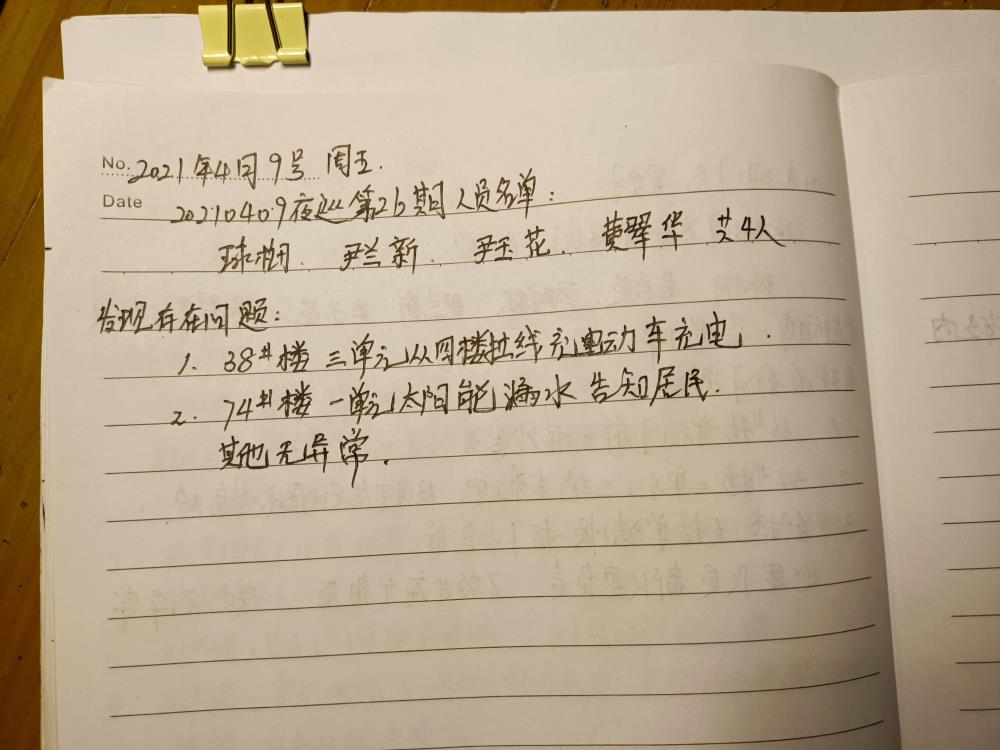 No. 2021年4月9号 周五.
Date
20210409夜巡第26期人员名单:
尹兰新. 尹玉花. 黄翠华 共4人
发现存在问题:
1. 38#楼三单元从四楼拉线充电动车充电.
2. 74#楼一单元太阳能漏水告知居民.
其他无异常.